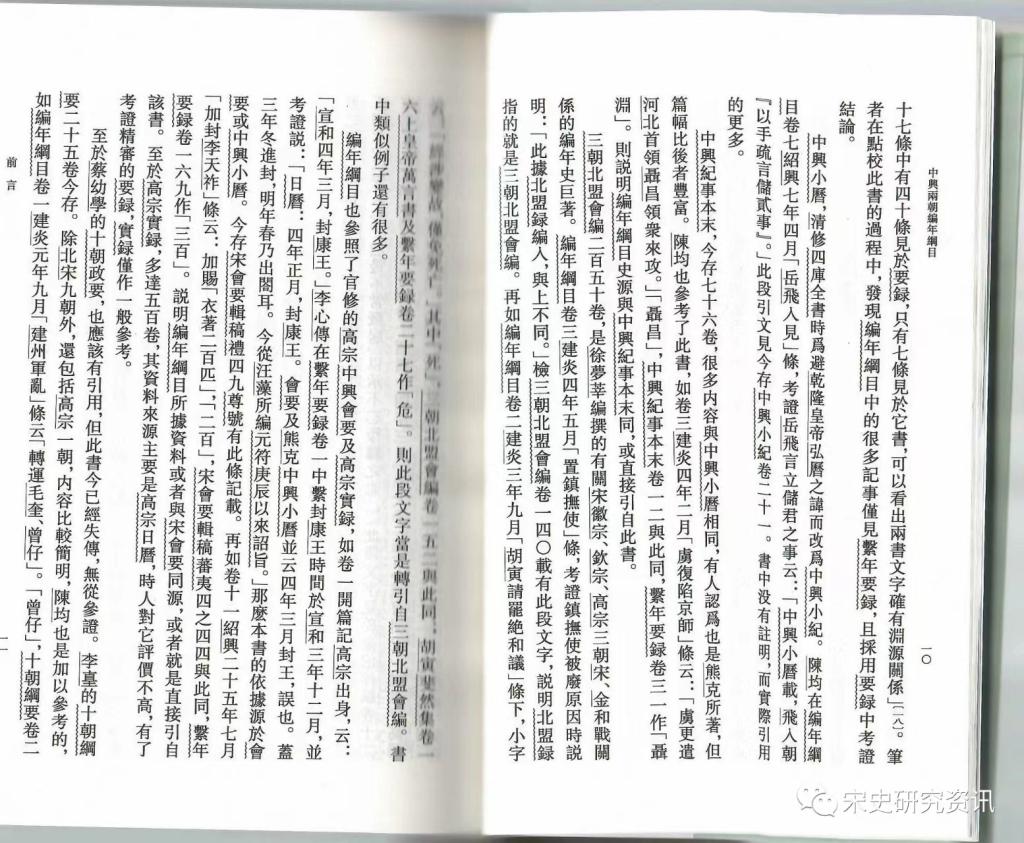 中興兩朝編年綱目
一〇
十七條中有四十條見於要録，只有七條見於它書，可以看出兩書文字確有淵源關係」〔一八〕。筆
者在點校此書的過程中，發現編年綱目中的很多記事僅見繫年要録，且採用要録中考證
結論。
中興小曆，清修四庫全書時爲避乾隆皇帝弘曆之諱而改爲中興小紀。陳均在編年綱
目卷七紹興七年四月「岳飛入見」條，考證岳飛言立儲君之事云：「中興小曆載，飛入朝
『以手疏言儲貳事』。」此段引文見今存中興小紀卷二十一。書中没有註明，而實際引用
的更多。
中興紀事本末，今存七十六卷，很多内容與中興小曆相同，有人認爲也是熊克所著，但
篇幅比後者豐富。陳均也參考了此書，如卷三建炎四年二月「虜復陷京師」條云：「虜更遣
河北首領聶昌領衆來攻。」「聶昌」，中興紀事本末卷一二與此同，繫年要録卷三一作「聶
淵」。則説明編年綱目史源與中興紀事本末同，或直接引自此書。
三朝北盟會編二百五十卷，是徐夢莘編撰的有關宋徽宗、欽宗、高宗三朝宋、金和戰關
係的編年史巨著。編年綱目卷三建炎四年五月「置鎮撫使」條，考證鎮撫使被廢原因時説
明：「此據北盟録編入，與上不同。」檢三朝北盟會編卷一四〇載有此段文字，説明北盟録
指的就是三朝北盟會編。再如編年綱目卷二建炎三年九月「胡寅請罷絶和議」條下，小字
云：「經涉變故，僅免死亡。」其中「死」，三朝北盟會編卷一五二與此同，胡寅斐然集卷一
六上皇帝萬言書及繫年要録卷二十七作「危」。則此段文字當是轉引自三朝北盟會編。書
中類似例子還有很多。
編年綱目也參照了官修的高宗中興會要及高宗實録，如卷一開篇記高宗出身，云：
「宣和四年三月，封康王。」李心傳在繫年要録卷一中繫封康王時間於宣和三年十二月，並
考證説：「日曆：四年正月，封康王。會要及熊克中興小曆並云四年三月封王，誤也。蓋
三年冬進封，明年春乃出閤耳。今從汪藻所編元符庚辰以來詔旨。」那麽本書的依據源於會
要或中興小曆。今存宋會要輯稿禮四九尊號有此條記載。再如卷十一紹興二十五年七月
「加封李天祚」條云：加賜「衣著二百匹」，「二百」，宋會要輯稿蕃夷四之四四與此同，繫年
要録卷一六九作「三百」。説明編年綱目所據資料或者與宋會要同源，或者就是直接引自
該書。至於高宗實録，多達五百卷，其資料來源主要是高宗日曆，時人對它評價不高，有了
考證精審的要録，實録僅作一般參考。
至於蔡幼學的十朝政要，也應該有引用，但此書今已經失傳，無從參證。李𡌴的十朝綱
要二十五卷今存。除北宋九朝外，還包括高宗一朝，内容比較簡明，陳均也是加以參考的，
如編年綱目卷一建炎元年九月「建州軍亂」條云「轉運毛奎、曾仔」。「曾仔」，十朝綱要卷二
前言
一一
宋史研究资讯